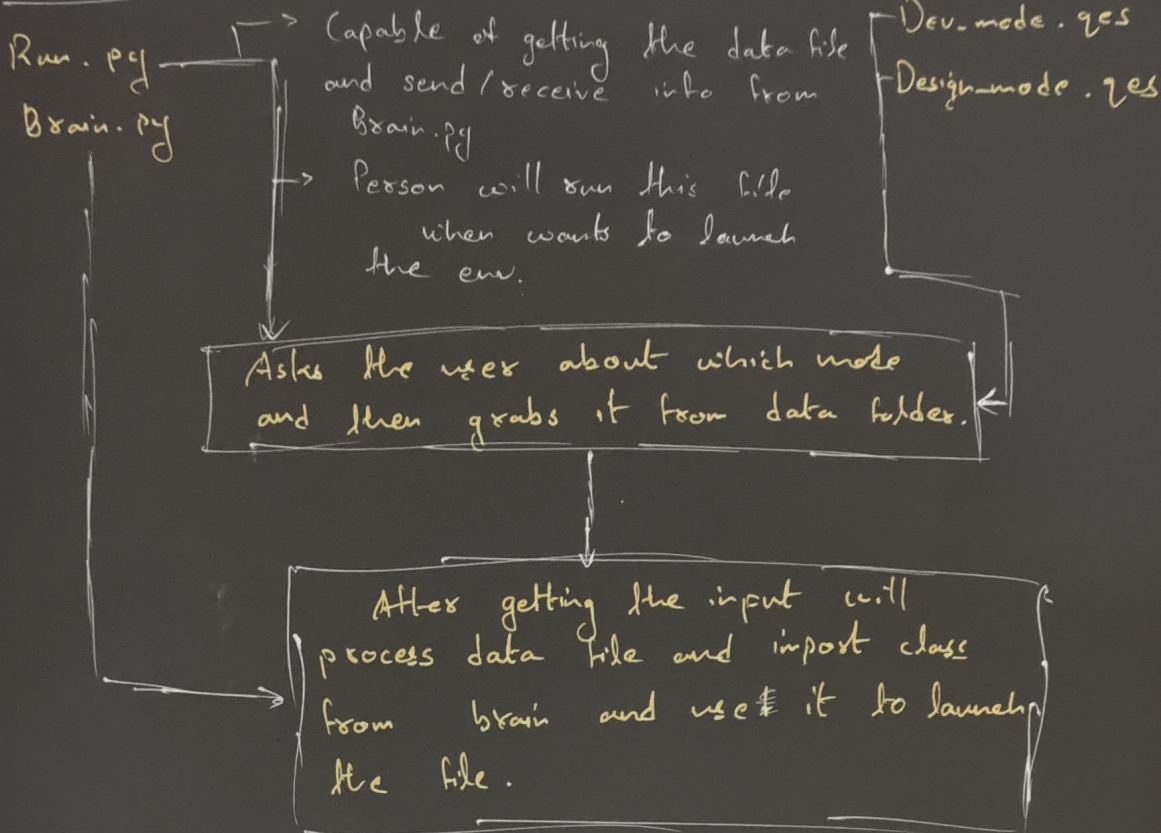 Run.py
Brain.py
Capable of getting the data file
and send/receive info from
Brain.py
Person will run this file
when wants to launch
the env.
Dev_mode.qes
Design_mode.qes
Asks the user about which mode
and then grabs it from data folder.
After getting the input will
process data file and import class
from brain and use it to launch
the file.